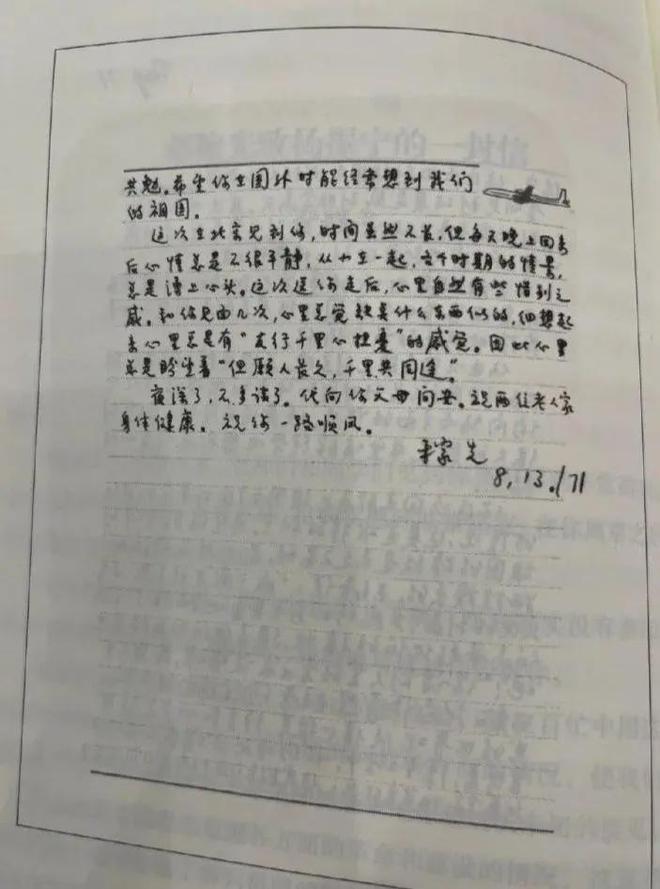 共勉。希望你在国外时能经常想到我们
的祖国。
这次在北京见到你,时间虽然不长,但每天晚上回来
后心情总是不很平静,从小在一起,各个时期的情景,
总是涌上心头。这次送你走后,心里自然有些惜别之
感。和你见面几次,心里总觉缺是什么东西似的,细想起
来心里总是有“友行千里心担忧”的感觉。因此心里
总是盼望着“但愿人长久,千里共同途。”
夜深了,不多谈了。代向你父母问安。祝两位老人家
身体健康。祝你一路顺风。
稼先
8,13./71